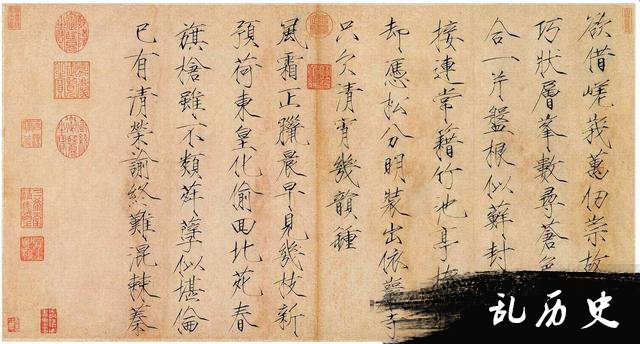 欲借嵯峨萬仞崇故
巧狀層峯數尋蒼色
合一片盤根似蘚封
接連常籍竹池亭
却憑松分明裝出依巖寺
只欠清宵幾韻種
風霜正臘晨早見幾枝新
預荷東皇化偷回北苑春
旗槍雖不類荂孽似堪倫
已有清榮諭終難混棘蓁
乱历史